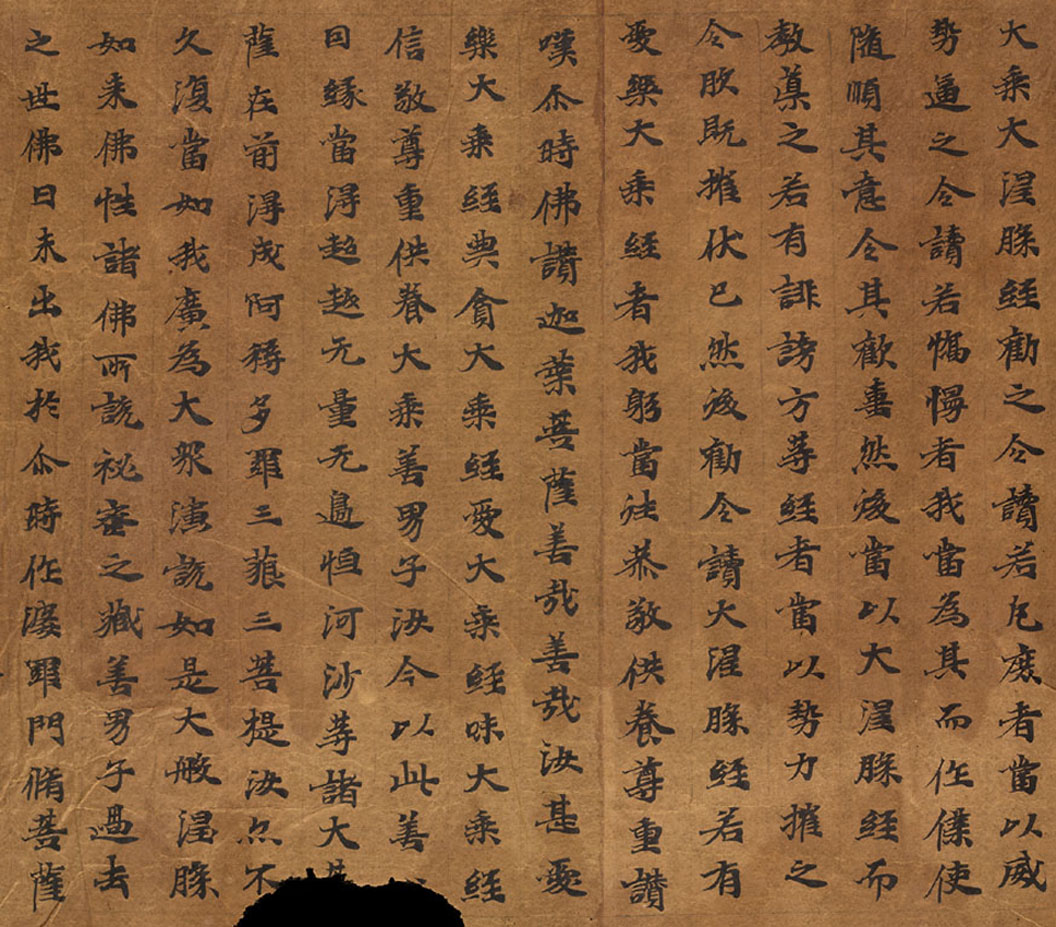 大乘大涅槃經勸之令讀若凡庶者當以威
勢逼之令讀若憍慢者我當為其而作僕使
随順其意令其歡喜然後當以大涅槃經而
教導之若有誹謗方等經者當以勢力摧之
令既摧伏已然後勸令讀大涅槃經若有
愛樂大乘經者我躬當往恭敬供養尊重讃
嘆尒時佛讃迦葉菩薩善哉善哉汝甚愛
樂大乘經典貪大乘經愛大乘經味大乘經
信敬尊重供養大乘善男子汝今以此善
因緣當得超越无量无邊恒河沙等諸大
薩在前得成阿耨多羅三藐三菩提汝亦不
久復當如我廣為大衆演說如是大般涅槃
如来佛性諸佛所說祕密之藏善男子過去
之世佛日未出我於尒時作婆羅門脩菩薩